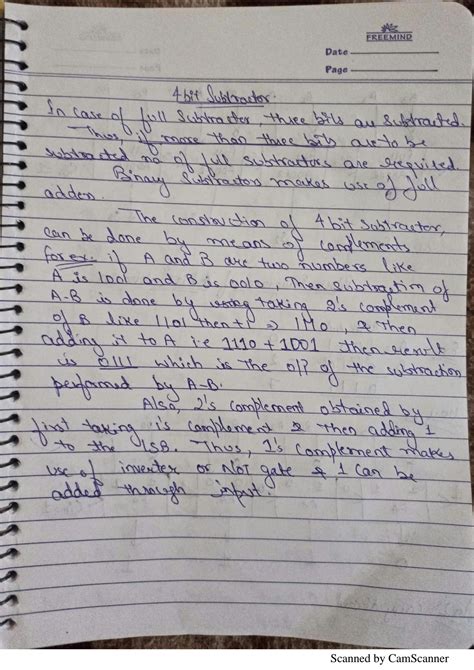 FREEMIND
Date
Page
4 bit Subtractor
In case of full Subtractor, three bits are subtracted.
Thus, if more than three bits are to be
subtracted no of full subtractors are required
Binary Subtractors makes use of full
adder.
The construction of 4 bit Subtractor,
can be done by means of complements
for ex: if A and B are two numbers like
A is 1001 and B is 0010, Then subtraction of
A-B is done by taking 2's complement
of B like 1101 then +1 ⇒ 1110, & Then
adding it to A i.e 1110 + 1001 then result
is 0111 which is the o/p of the subtraction
performed by A-B.
Also, 2's complement obtained by
first taking 1's complement & then adding 1
to the LSB. Thus, 1's complement makes
use of inverter or NOT gate & 1 can be
added through input.
Scanned by CamScanner